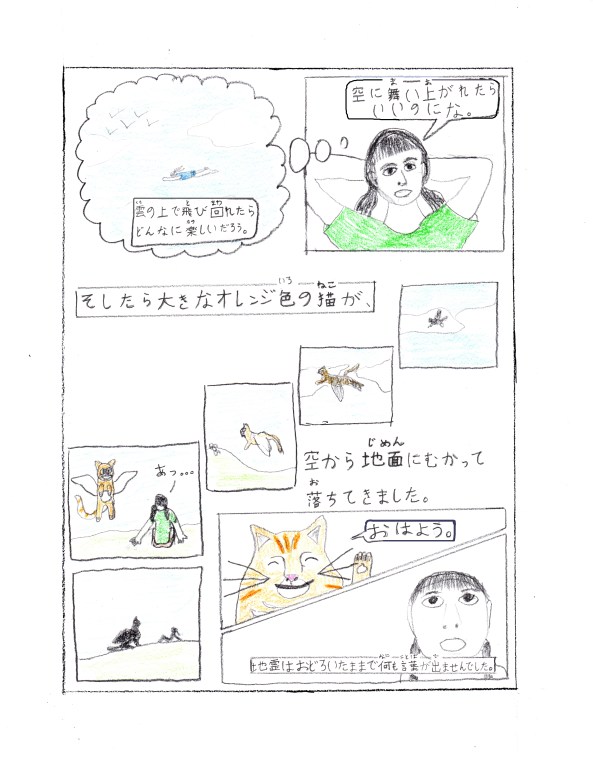 空に舞い上がれたら
いいのにな。
雲の上で飛び回れたら
どんなに楽しいだろう。
そしたら大きなオレンジ色の猫が、
空から地面にむかって
落ちてきました。
あっ...
おはよう。
地霊はおどろいたままで何も言葉が出ませんでした。